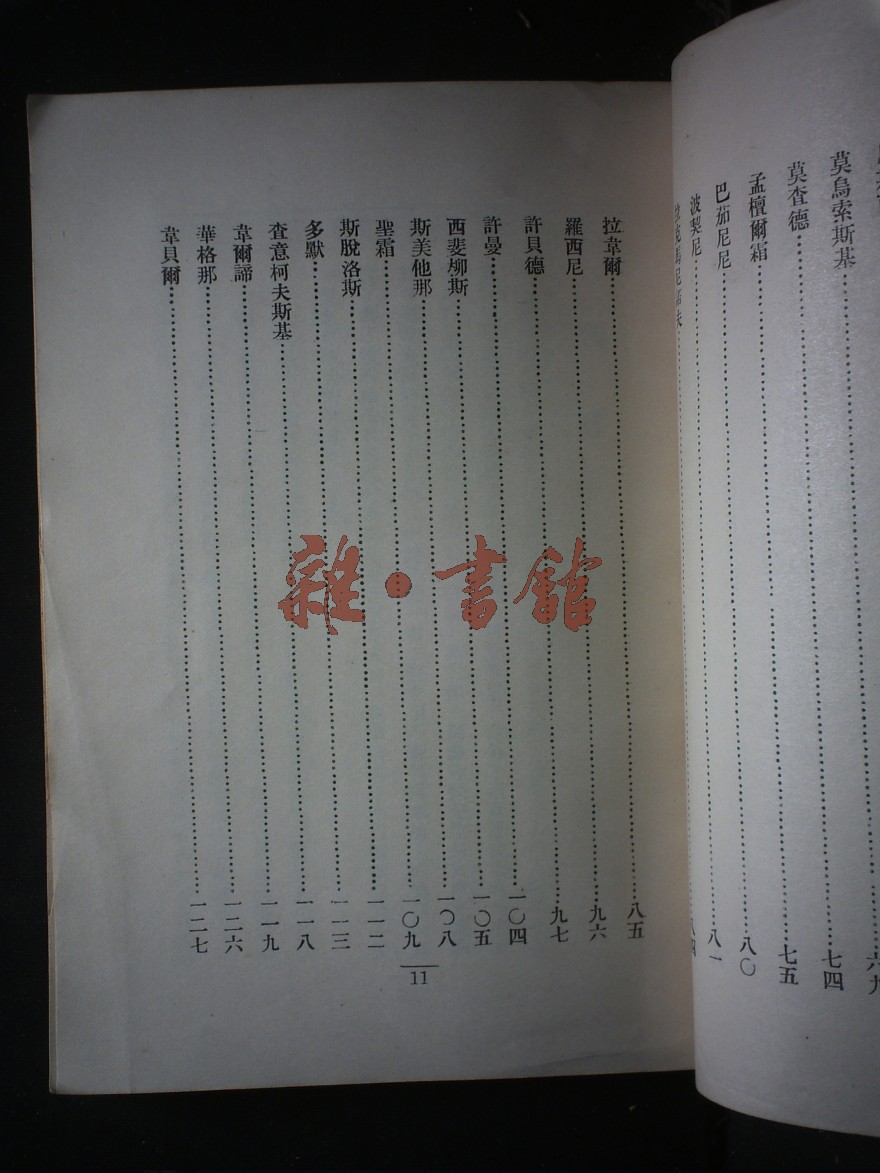 六九
莫烏索斯基……七四
莫查德……七五
孟檀爾霜……八〇
巴茄尼尼……八一
波契尼……八四
拉韋爾……八五
羅西尼……九六
許貝德……九七
許曼……一〇四
西斐栁斯……一〇五
斯美他那……一〇八
聖霜……一〇九
斯脫洛斯……一一二
多默……一一三
查意柯夫斯基……一一八
韋爾諦……一一九
華格那……一二六
韋貝爾……一二七
11
雜·書館